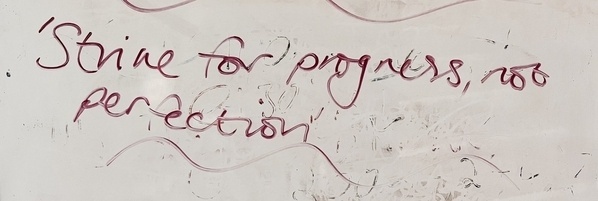 'Strive for progress, not
perfection'